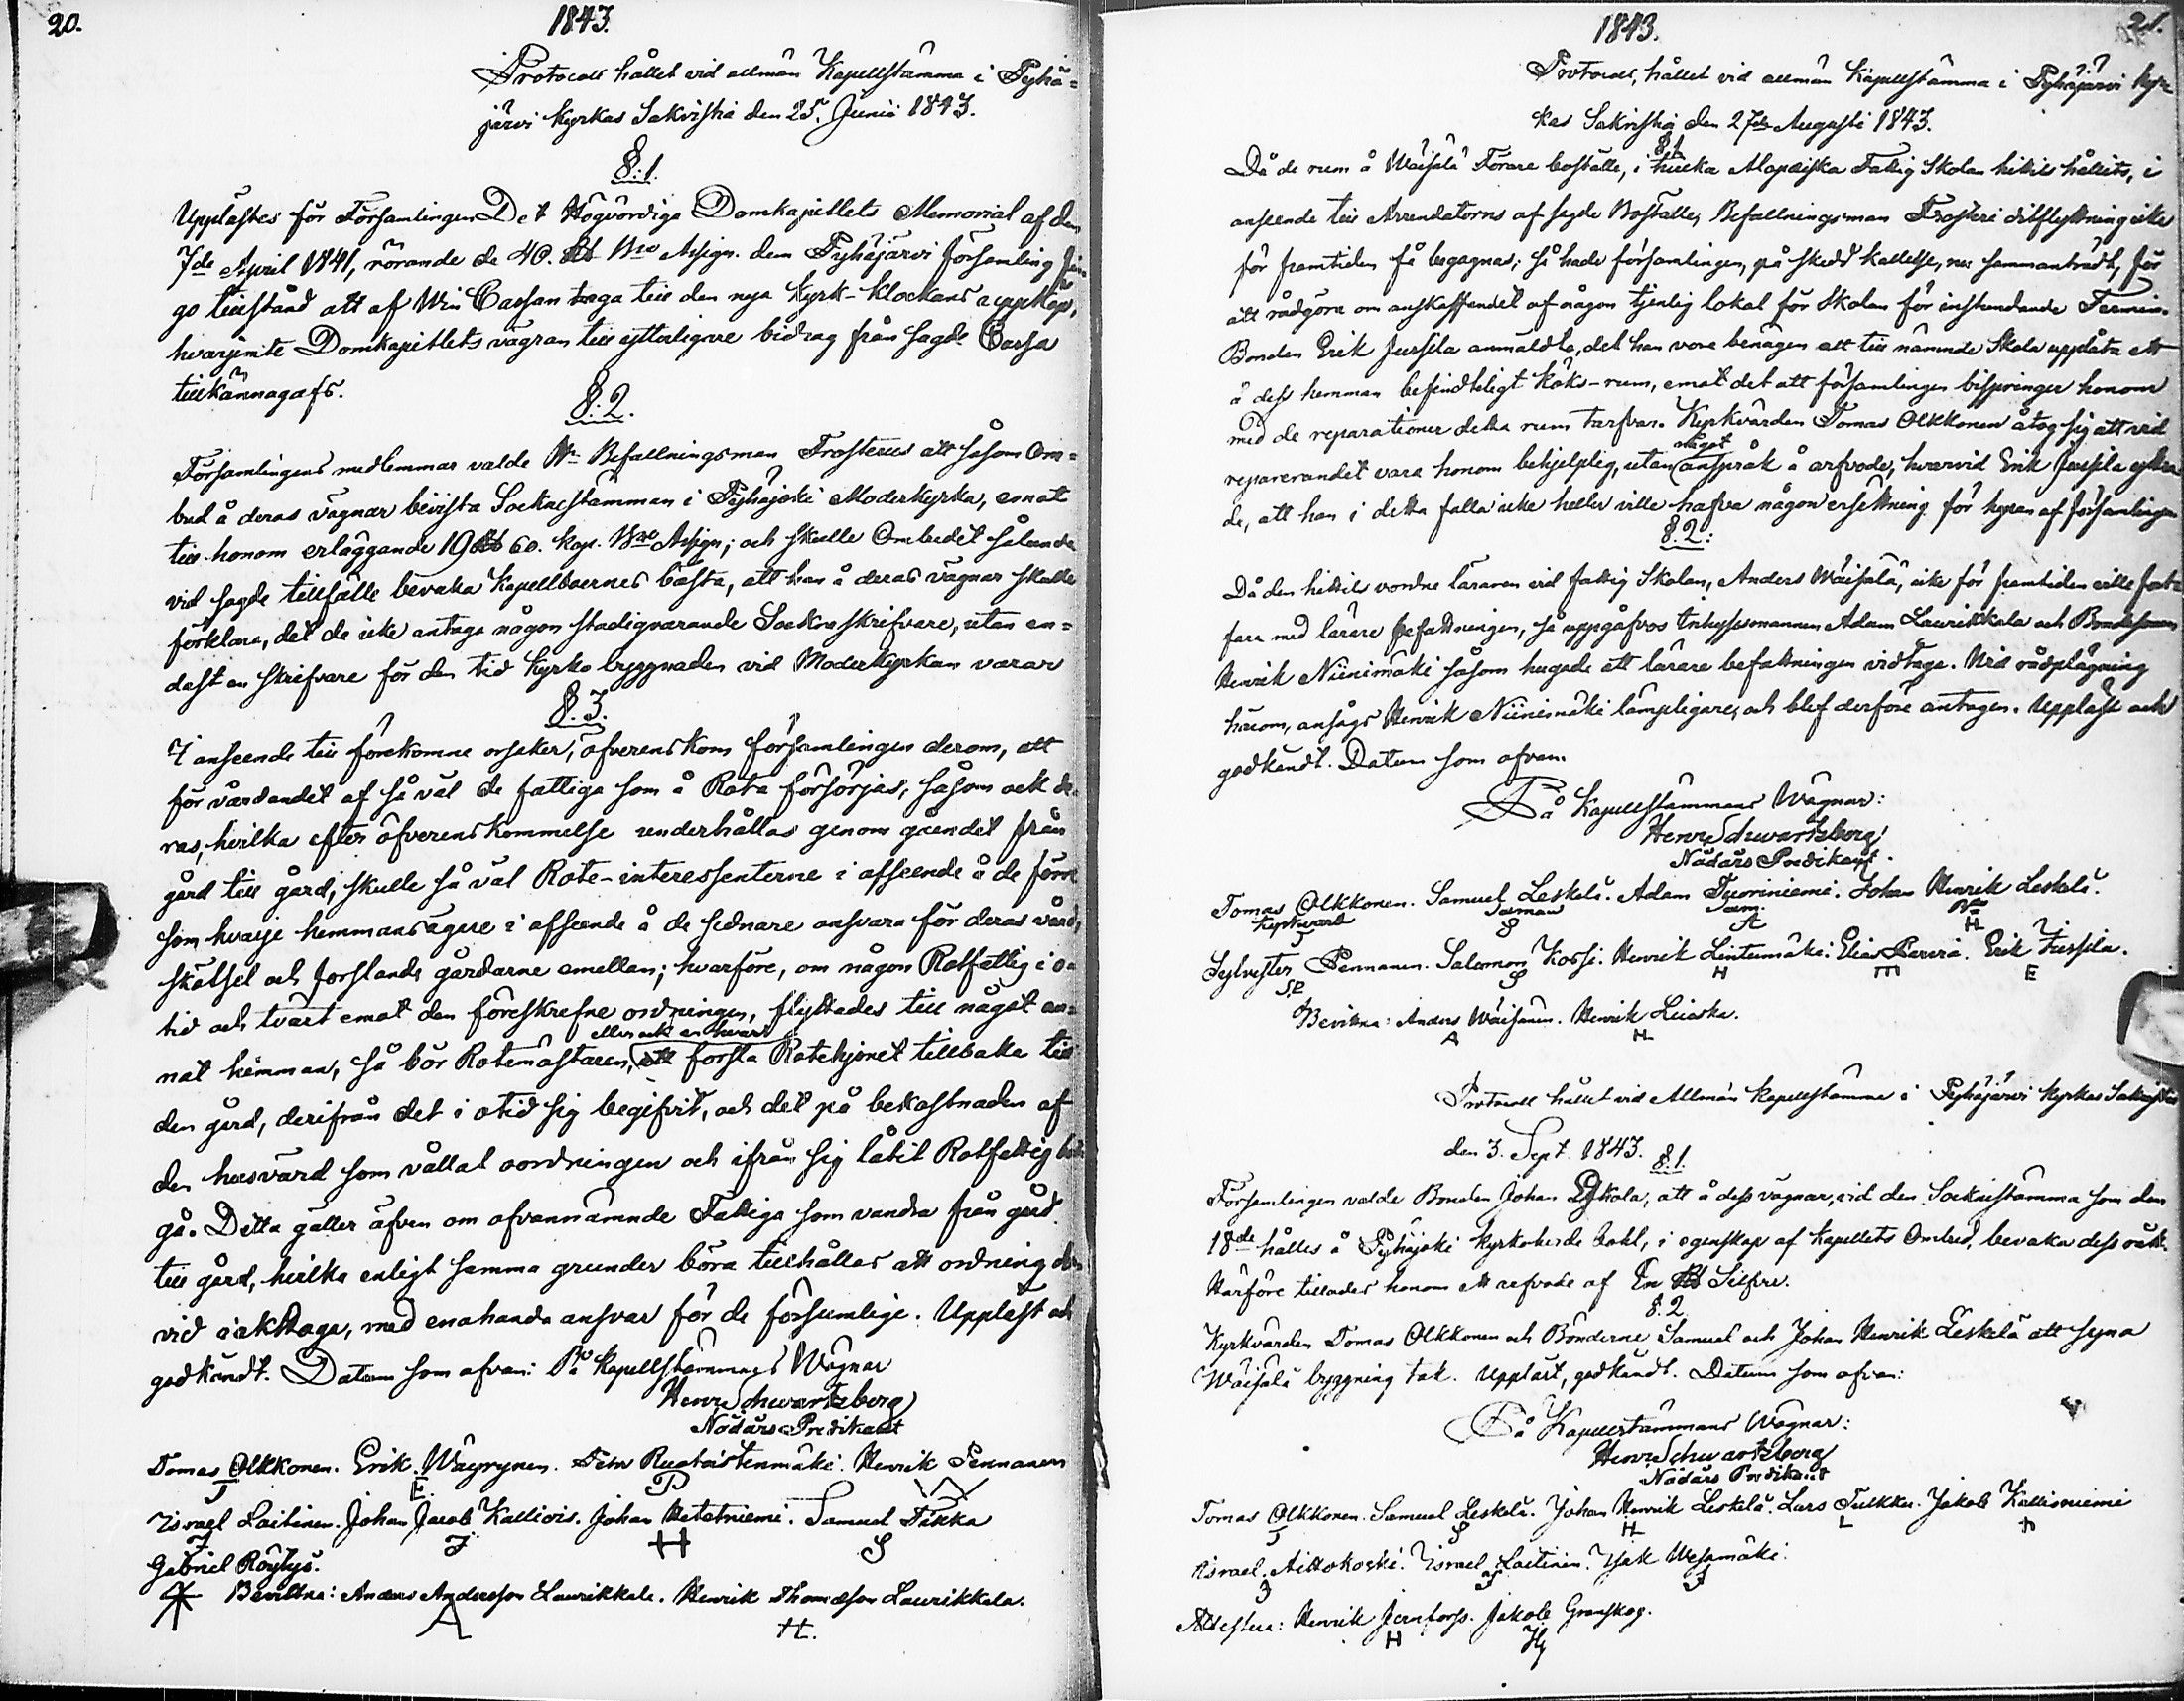 20.
1843.
Protocoll hållet vid allmän Kapellstämma i Pyhä=
järvi Kyrkas Sakristia den 25. Junii 1843.
§.1.
Upplästes för Församlingen Det Högvördiga Domkapitlets Memorial af den
7de April 1841, rörande de 40. Rb Bco Assign. dem Pyhäjärvi församling
go tillstånd att af Win Cassan taga till den nya Kyrk-klockans uppköp,
hvarjemte Domkapitlets vägran till ytterligare bidrag från sagde Cassa
tillkännagafs.
§.2.
Församlingens medlemmar valde Hr Befallningsman Frosterus att såsom Om=
bud å deras vägnar bevista Sockenstämman i Pyhäjoki Moderkyrka, emot
till honom erläggande 19 Rb 60. kop. Bco Assign; och skulle Ombudet sålunda
vid sagde tillfälle bevaka Kapellboernes bästa, att han å deras vägnar skulle
förklara, det de icke antaga någon stadigvarande Sockneskrifvare, utan en=
dast en skrifvare för den tid Kyrko byggnaden vid Moderkyrkan varar
§.3.
I anseende till förekomne orsaker, öfverenskom församlingen derom, att
för vårdandet af så väl de fattiga som å Rota försörjas, såsom ock de
ras, hvilka efter öfverenskommelse underhållas genom gåendet från
gård till gård, skulle så väl Rote-interessenterne i afseende å de förre
som hvarje hemmansägare i afseende å de sednare ansvara för deras vård,
skötsel och forslande gårdarne emellan; hvarföre, om någon Rotfattig i o=
tid och tvärt emot den föreskrefne ordningen, flyttades till något an=
eller ock en hvar
nat hemman, så bör Rotemästaren, att forsla Rotehjonet tillbaka till
den gård, derifrån det i otid sig begifvit, och det på bekostnaden af
den husvärd som vållat oordningen och ifrån sig låtit Rotfattig
gå. Detta gäller äfven om ofvannämnde Fattiga som vandra från gård
till gård, hvilka enligt samma grunder böra tillhållas att ordning
vid iakttaga, med enahanda ansvar för de försumlige. Uppläst och
godkändt. Datum som ofvan: På Kapellstämmans Wägnar
Henr Schwartzberg
Nådårs Predikant
Tomas Olkkonen. Erik Wäyrynen. Petter Ruotoistenmäki. Henrik Pennanen
T E. P
Israel Laitinen. Johan Jacob Kalliois. Johan Hietaniemi. Samuel Tikka
I J H S
Gabriel Röytys.
Bevittna: Anders Andersson Laurikkala. Henrik Thomasson Laurikkala.
A H.
1843.
21.
Protocoll, hållet vid allmän Kapellstämma i Pyhäjärvi Kyr=
kas Sakristia den 27de Augusti 1843.
§.1
Då de rum å Wäisälä Förare boställe, i hvilka Alopaiska Fattig Skolan hittils hållits, i
anseende till Arrendatorns af sagde Boställe, Befallningsman Frosteri ditflyttning icke
för framtiden få begagnas; så hade församlingen, på skedd kallelse, nu sammanträdt, för
att rådgöra om anskaffendet af någon tjenlig lokal för Skolan för instundande Termin.
Bonden Erik Jussila anmäldte, det han vore benägen att till nämnde Skola upplåta ett
å dess hemman befindteligt köks-rum, emot det att församlingen bispringer honom
med de reparationer detta rum tarfvar. Kyrkvärden Tomas Olkkonen åtog sig att vid
något
reparerandet vara honom behjelplig, utan anspråk å arfvode, hvarvid Erik Jussila yttra
de, att han i detta fall icke heller ville hafva någon ersättning för hyran af församlingen
§.2:
Då den hittils vordne läraren vid fattig Skolan, Anders Wäisälä, icke för framtiden ville fort
fara med lärare befattningen, så uppgåfvos Inhysesmannen Adam Laurikkala och Bondesonen
Henrik Niinimäki såsom hugade att lärare befattningen vidtaga. Vid rådplägning
härom, ansågs Henrik Niinimäki lämpligare, och blef derföre antagen. Uppläst och
godkändt. Datum som ofvan.
På Kapellstämmans Wägnar:
Henr Schwartzberg
Nådårs Predikant.
Tomas Olkkonen. Samuel Leskelä. Adam Tuoriniemi. Johan Henrik Leskelä.
Kyrkvärd
T S A H
Sylvester Pennanen. Salomon Kossi. Henrik Lintumäki. Elias Parviä. Erik Jussila.
SP S H E E
Bevittna: Anders Wäisänen. Henrik Luiska.
A H
Protocoll hållet vid Allmän Kapellstämma i Pyhäjärvi Kyrkas Sakristia
den 3. Sept 1843.
§.1.
Församlingen valde Bonden Johan Eskola, att å dess vägnar, vid den Socknestämma som den
18de hålles å Pyhäjoki kyrkoherde bohl, i egenskap af Kapellets Ombud, bevaka dess rätt.
Härföre tillades honom ett arfvode af En Rb Silfver.
§.2
Kyrkvärden Tomas Olkkonen och Bönderne Samuel och Johan Henrik Leskelä att syna
Wäisälä byggning tak. Uppläst, godkändt. Datum som ofvan:
På Kapellstämmans Wägnar:
Henr Schwartzberg
Nådårs Predikant
Tomas Olkkonen. Samuel Leskelä. Johan Henrik Leskelä. Lars Tulkku. Jakob Kallioniemi
T S H L
Israel Aittokoski. Israel Laitinen. Isak Wesamäki.
I I I
Attestera: Henrik Jernfors. Jakob Granskog.
H